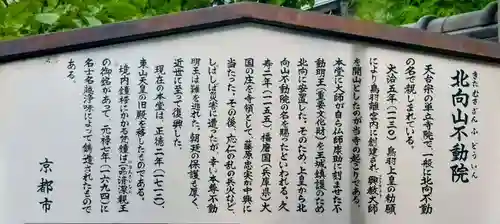 北向山不動院
きたむきざんふどういん
天台宗の単立寺院で、一般に北向不動
の名で親しまれている。
大治五年(一一三〇)鳥羽上皇の勅願
により鳥羽離宮内に創建され、興教大師
を開山としたのが当寺の起こりである。
本堂に大師が自ら仏師康助に刻ませた不
動明王(重要文化財)を王城鎮護のため
北向に安置した。そのため、上皇から北
向山不動院の名を賜ったといわれる。久
寿二年(一一五五)播磨国(兵庫県)大
国の庄を寺領として、藤原忠実が中興に
当たった。その後、応仁の乱の兵火など、
しばしば災害に遭ったが、幸い本尊不動
明王は難を逃れた。朝廷の保護も厚く、
近世に至って復興した。
現在の本堂は、正徳二年(一七一二)
東山天皇の旧殿を移したものである。
境内鐘楼にかかる梵鐘は「一品済深親王
の御銘があって、元禄七年(一六九四)に
名士名越浄味によって鋳造されたもので
ある。
京都市